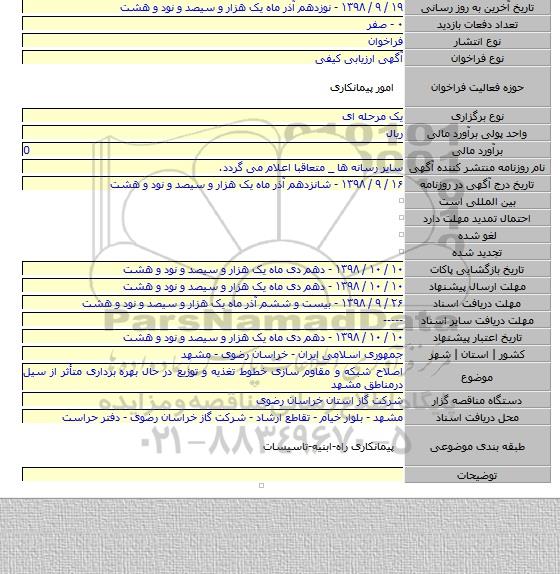 تاریخ آخرین به روز رسانی ۱۹ / ۹ / ۱۳۹۸ - نوزدهم آذر ماه یک هزار و سیصد و نود و هشت
تعداد دفعات بازدید ۰ - صفر
نوع انتشار فراخوان
نوع فراخوان آگهی ارزیابی کیفی
حوزه فعالیت فراخوان امور پیمانکاری
نوع برگزاری یک مرحله ای
واحد پولی برآورد مالی ریال
برآورد مالی 0
نام روزنامه منتشر کننده آگهی سایر رسانه ها _ متعاقبا اعلام می گردد.
تاریخ درج آگهی در روزنامه ۱۶ / ۹ / ۱۳۹۸ - شانزدهم آذر ماه یک هزار و سیصد و نود و هشت
بین المللی است
احتمال تمدید مهلت دارد
لغو شده
تجدید شده
تاریخ بازگشایی پاکات ۱۰ / ۱۰ / ۱۳۹۸ - دهم دی ماه یک هزار و سیصد و نود و هشت
مهلت ارسال پیشنهاد ۱۰ / ۱۰ / ۱۳۹۸ - دهم دی ماه یک هزار و سیصد و نود و هشت
مهلت دریافت اسناد ۲۶ / ۹ / ۱۳۹۸ - بیست و ششم آذر ماه یک هزار و سیصد و نود و هشت
مهلت دریافت سایر اسناد -----
تاریخ اعتبار پیشنهاد ۱۰ / ۱۰ / ۱۳۹۸ - دهم دی ماه یک هزار و سیصد و نود و هشت
کشور | استان | شهر جمهوری اسلامی ایران - خراسان رضوی - مشهد
موضوع اصلاح شبکه و مقاوم سازی خطوط تغذیه و توزیع در حال بهره برداری متأثر از سیل
درمناطق مشهد
دستگاه مناقصه گزار شرکت گاز استان خراسان رضوی
محل دریافت اسناد مشهد - بلوار خیام - تقاطع ارشاد - شرکت گاز خراسان رضوی - دفتر حراست
طبقه بندی موضوعی پیمانکاری راه-ابنیه-تاسیسات
توضیحات
ParsNamadData
۰۲۱-۸۸۳۴۹۶۷۰-۵